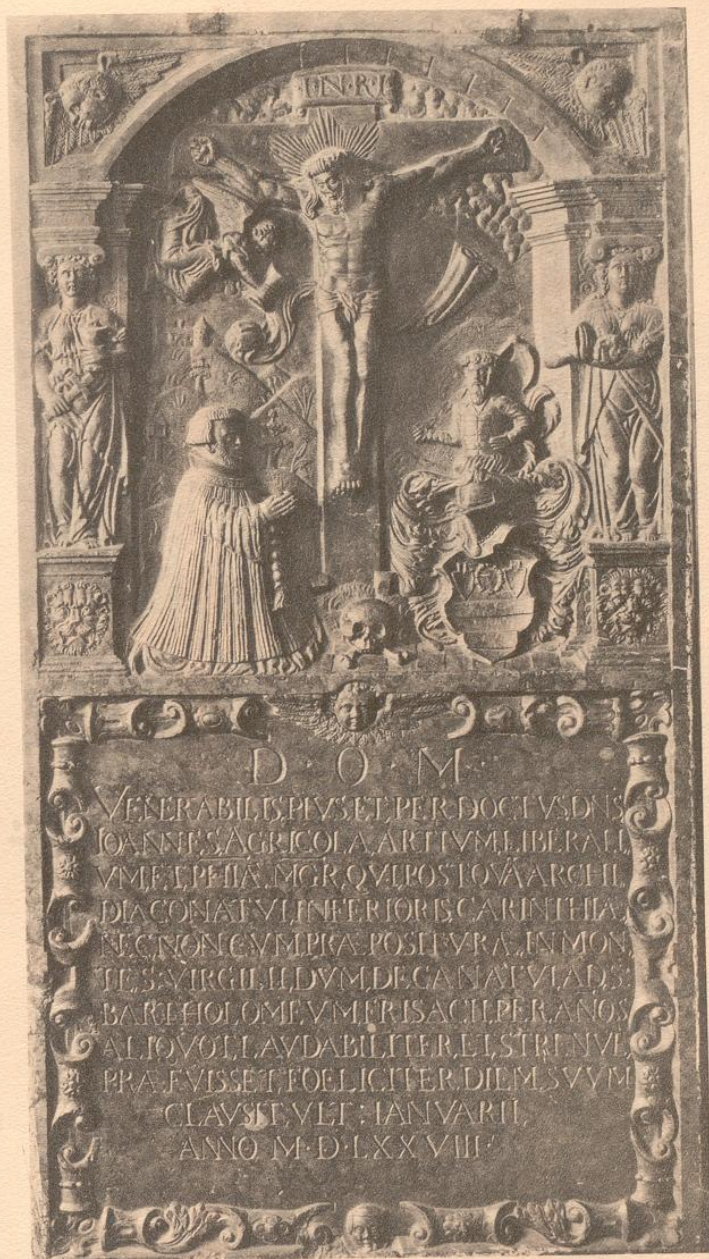 I·N·R·I
D · O · M ·
VENERABILIS, PIVS, ET, PER DOCTVS, DNS
IOANNES, AGRICOLA, ARTIVM, LIBERALI,
VM, ET, PHIÆ, MGR, QVI, POSTQVÃ, ARCHI,
DIACONATVI, INFERIORIS, CARINTHIÆ,
NEC, NON, CVM, PRÆPOSITVRA, IN MON
TE, S: VIRGILII, DVM, DECANATVI, AD, S:
BARTHOLOMEVM, FRISACII, PER, AÑOS
ALIQVOT, LAVDABILITER, ET, STRENVE,
PRÆFVISSET, FOELICITER, DIEM, SVVM
CLAVSIT, VLT: IANVARII,
ANNO M·D·LXXVIII·